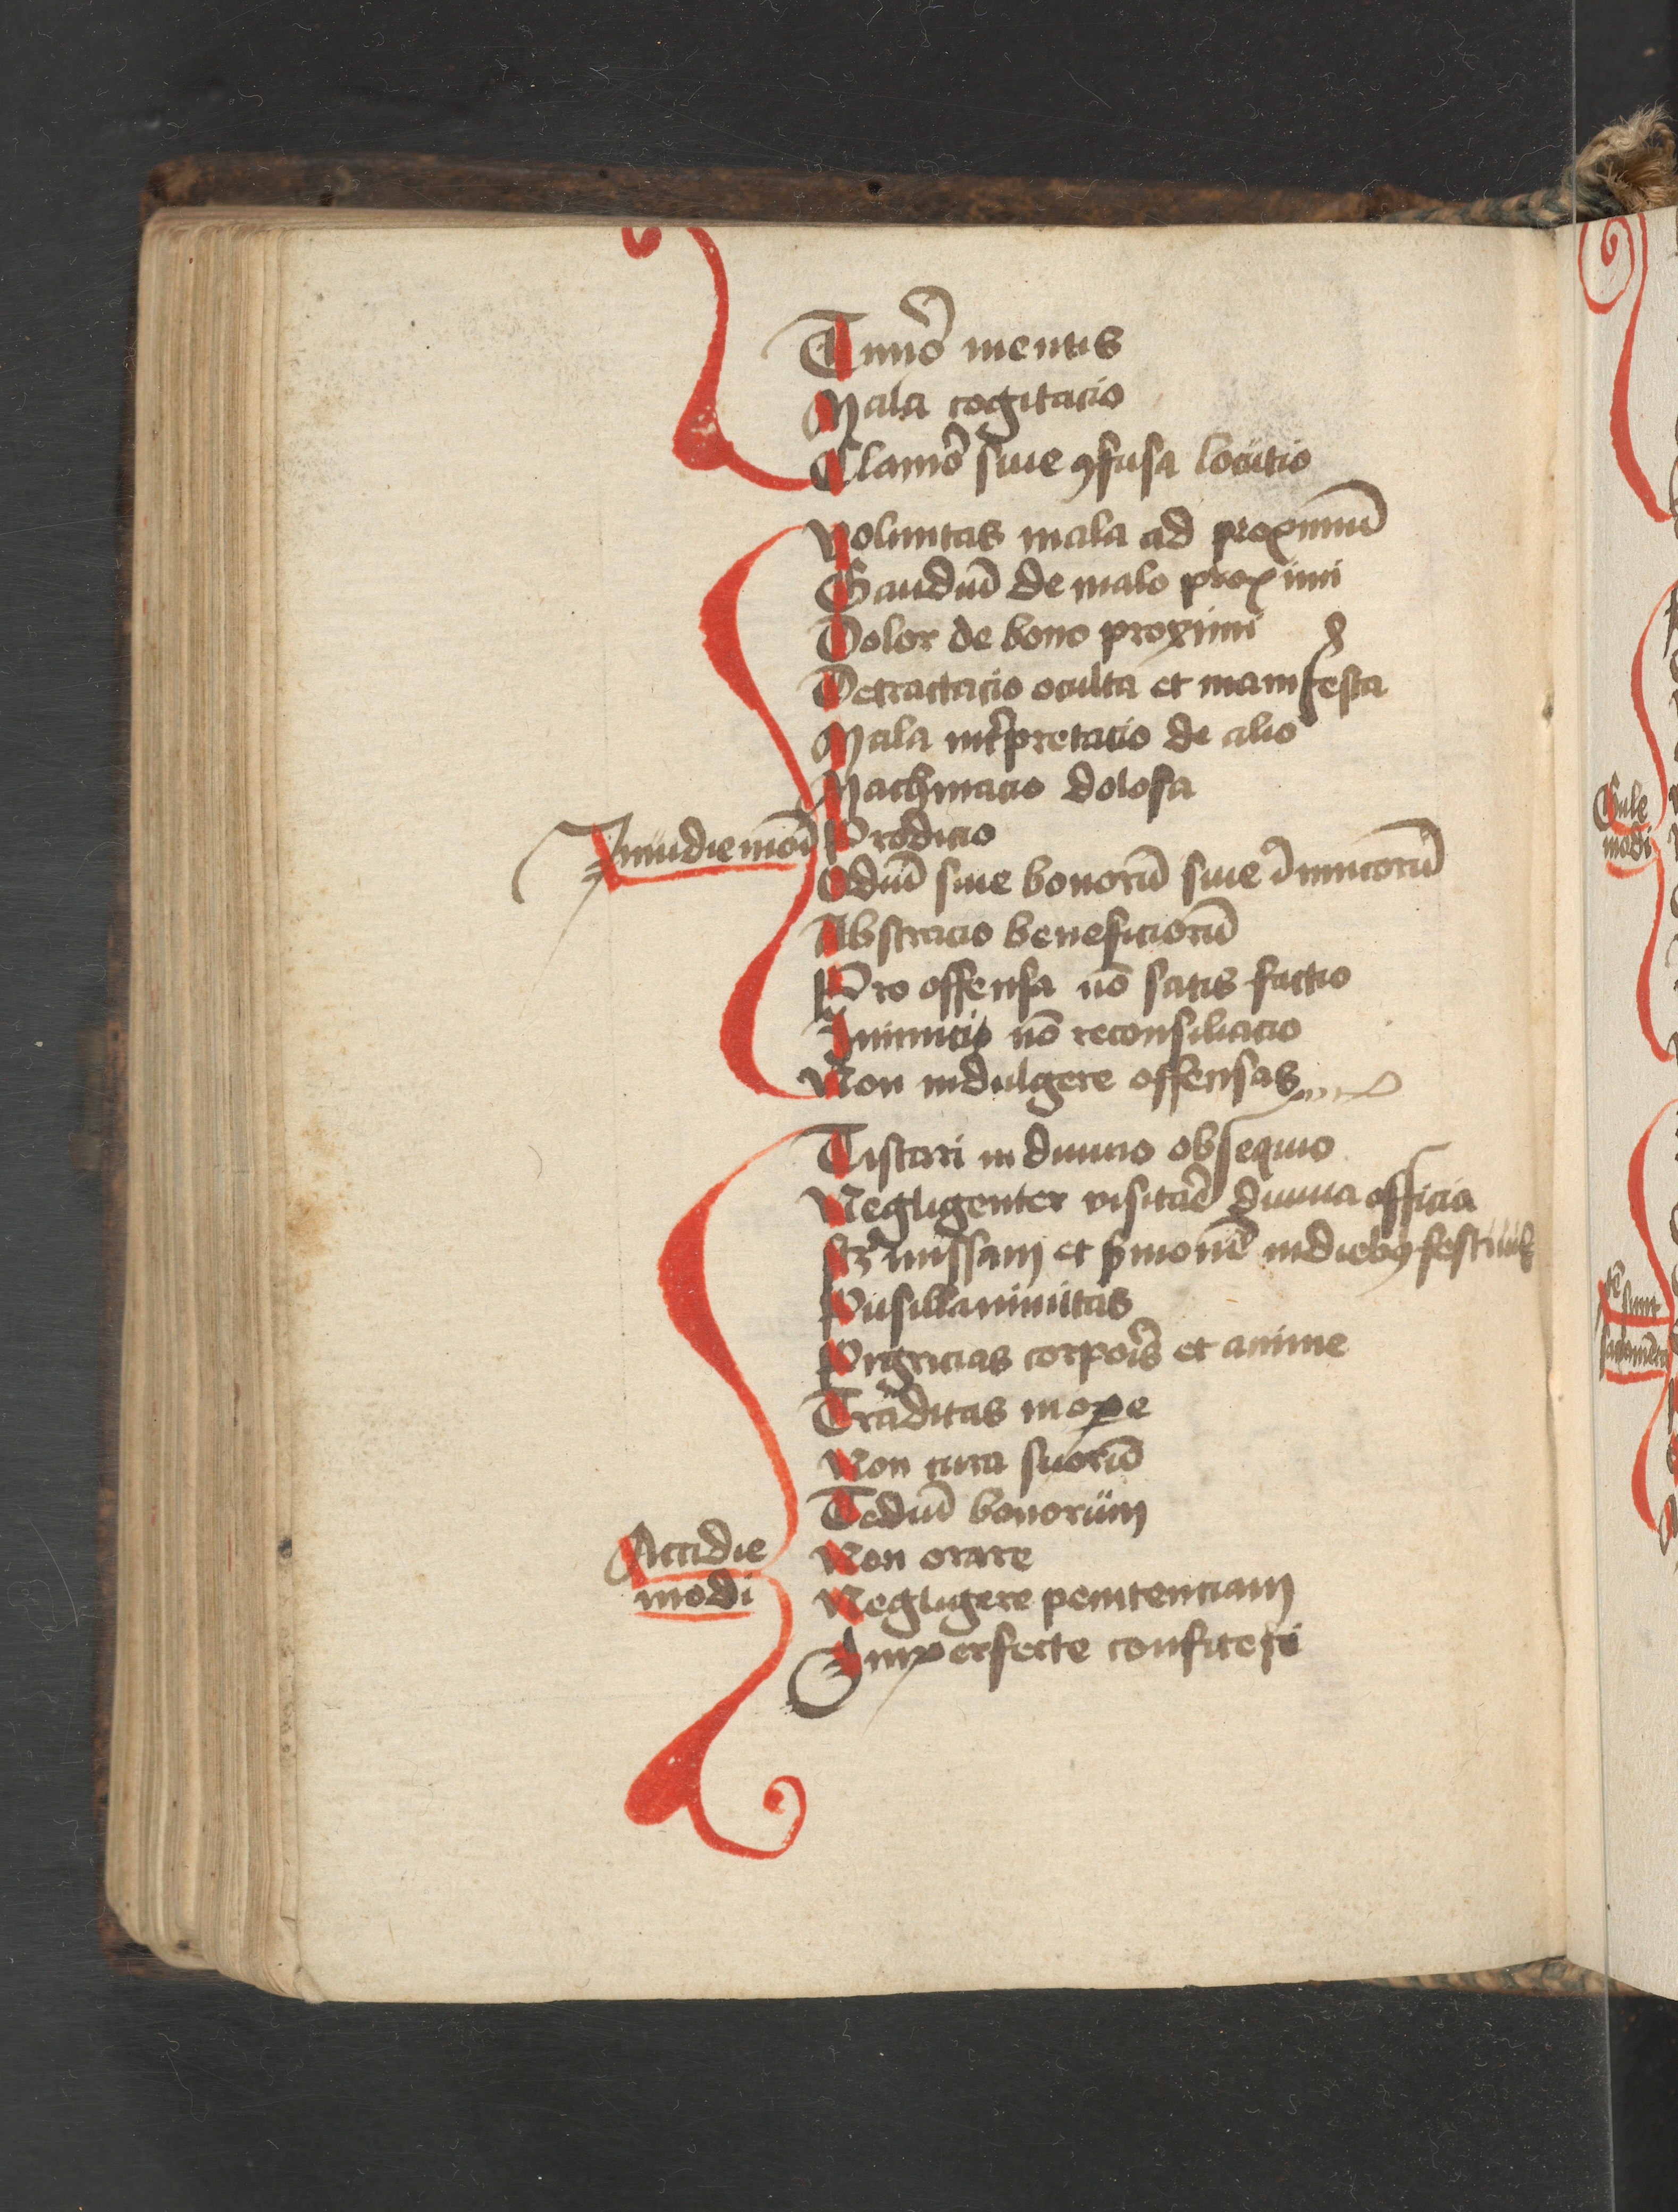 Timor̄ mentis
Mala cogitacio
Clamor̄ siue ꝯfusa locutio
Voluntas mala ad proximū
Gaudiū de malo proximi
Dolor de bono proximi
Detractacio oculta et manifesta
Mala int̄pretatio de alio
Machinacio dolosa
Inuidie modi
Prodicio
Odiū siue bonorū siue īnimicorū
Abstracio beneficiorū
Pro offensa nō satis factio
Inimicis nō reconsiliacio
Non indulgere offensas
Tristari in diuino obsequio
Negligenter visitar̄e diuina officia
sꝫ missam et ẜmonē in diebꝯ festiuis
Pusillanimitas
Pigricias corpor̄is et anime
Tarditas in oꝑe
Non cura suorū
Tediū bonorum
Accidie
modi
Non orare
Negligere penitenciam
Imperfecte confiteri
Gule
modi
sunt